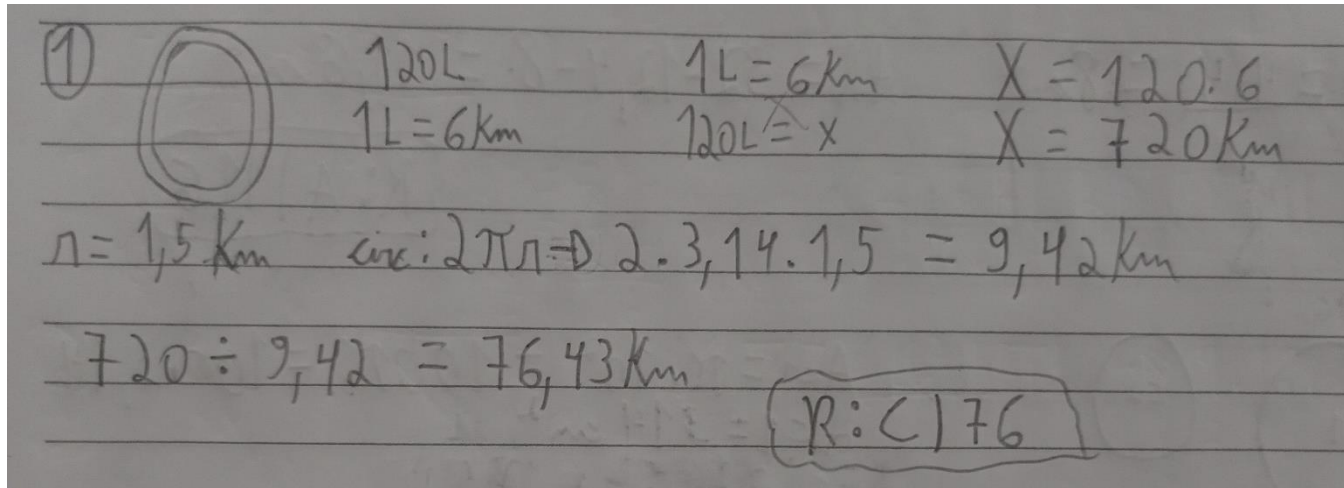 1 120L 1L = 6 Km X = 120.6
1L = 6 Km 120L = x X = 720 Km
r = 1,5 Km circ: 2πr ⇒ 2 . 3,14 . 1,5 = 9,42 Km
720 ÷ 9,42 = 76,43 Km
R: C) 76